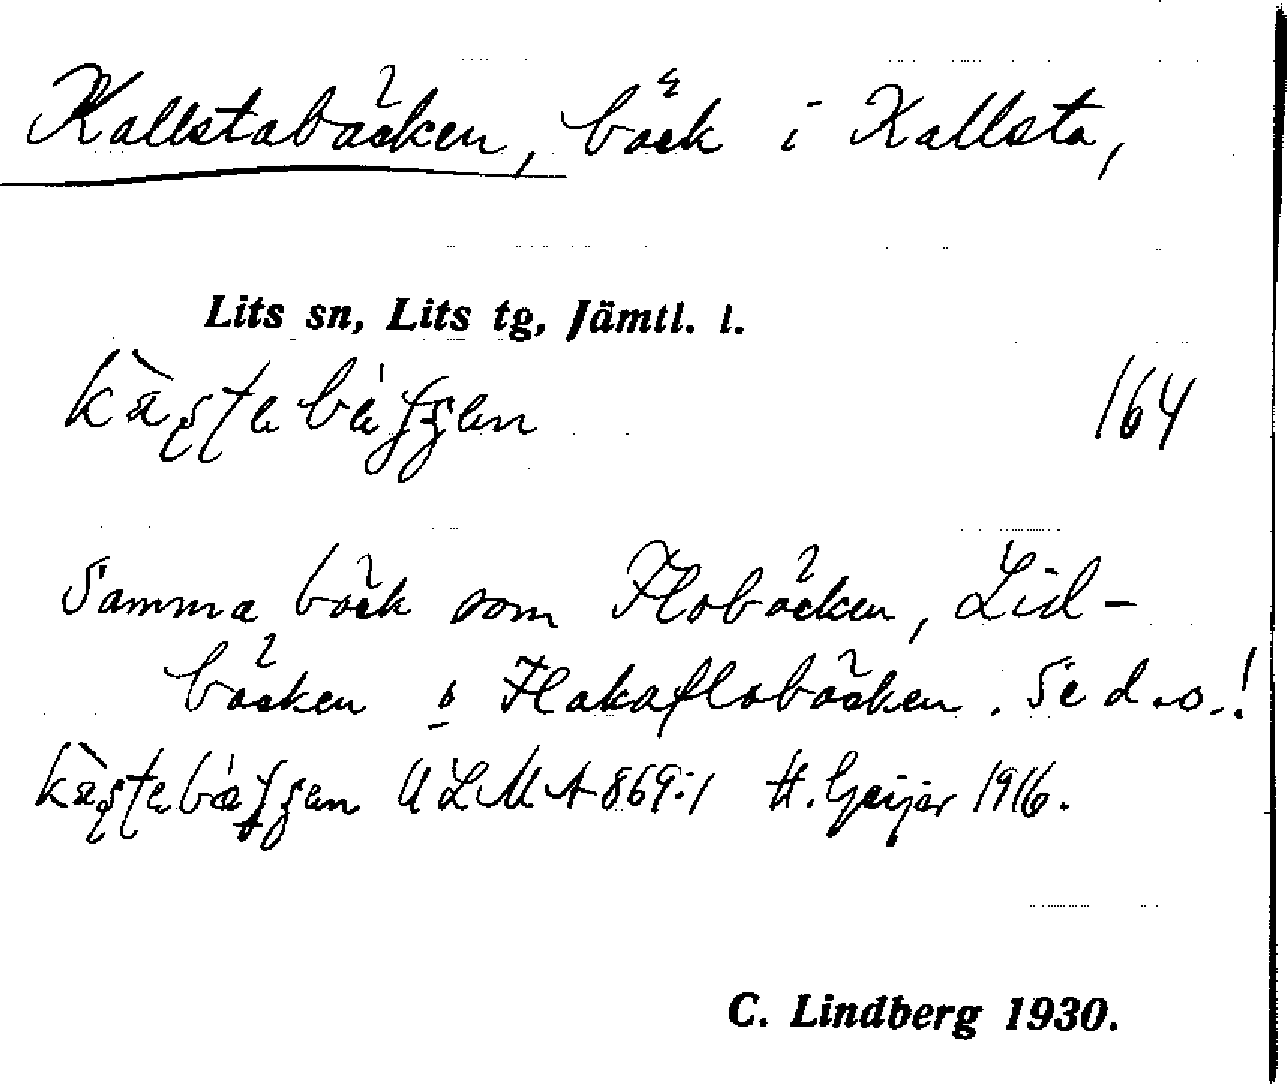 Kallstabäcken, bäck i Kallsta,
Lits sn, Lits tg, Jämtl. l.
164
Samma bäck som Flobäcken, Lid-
bäcken o Flakaflobäcken. Se d.o.!
ULMA 869:1 H. Geijer 1916.
C. Lindberg 1930.